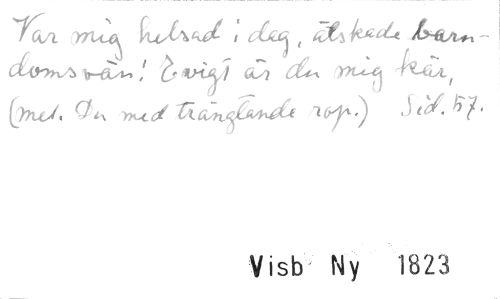 Var mig helsad i dag, älskade barn-
domsvän! Evigt är du mig kär,
(mel. Du med trängtande rop.) Sid. 57.
Visb Ny 1823